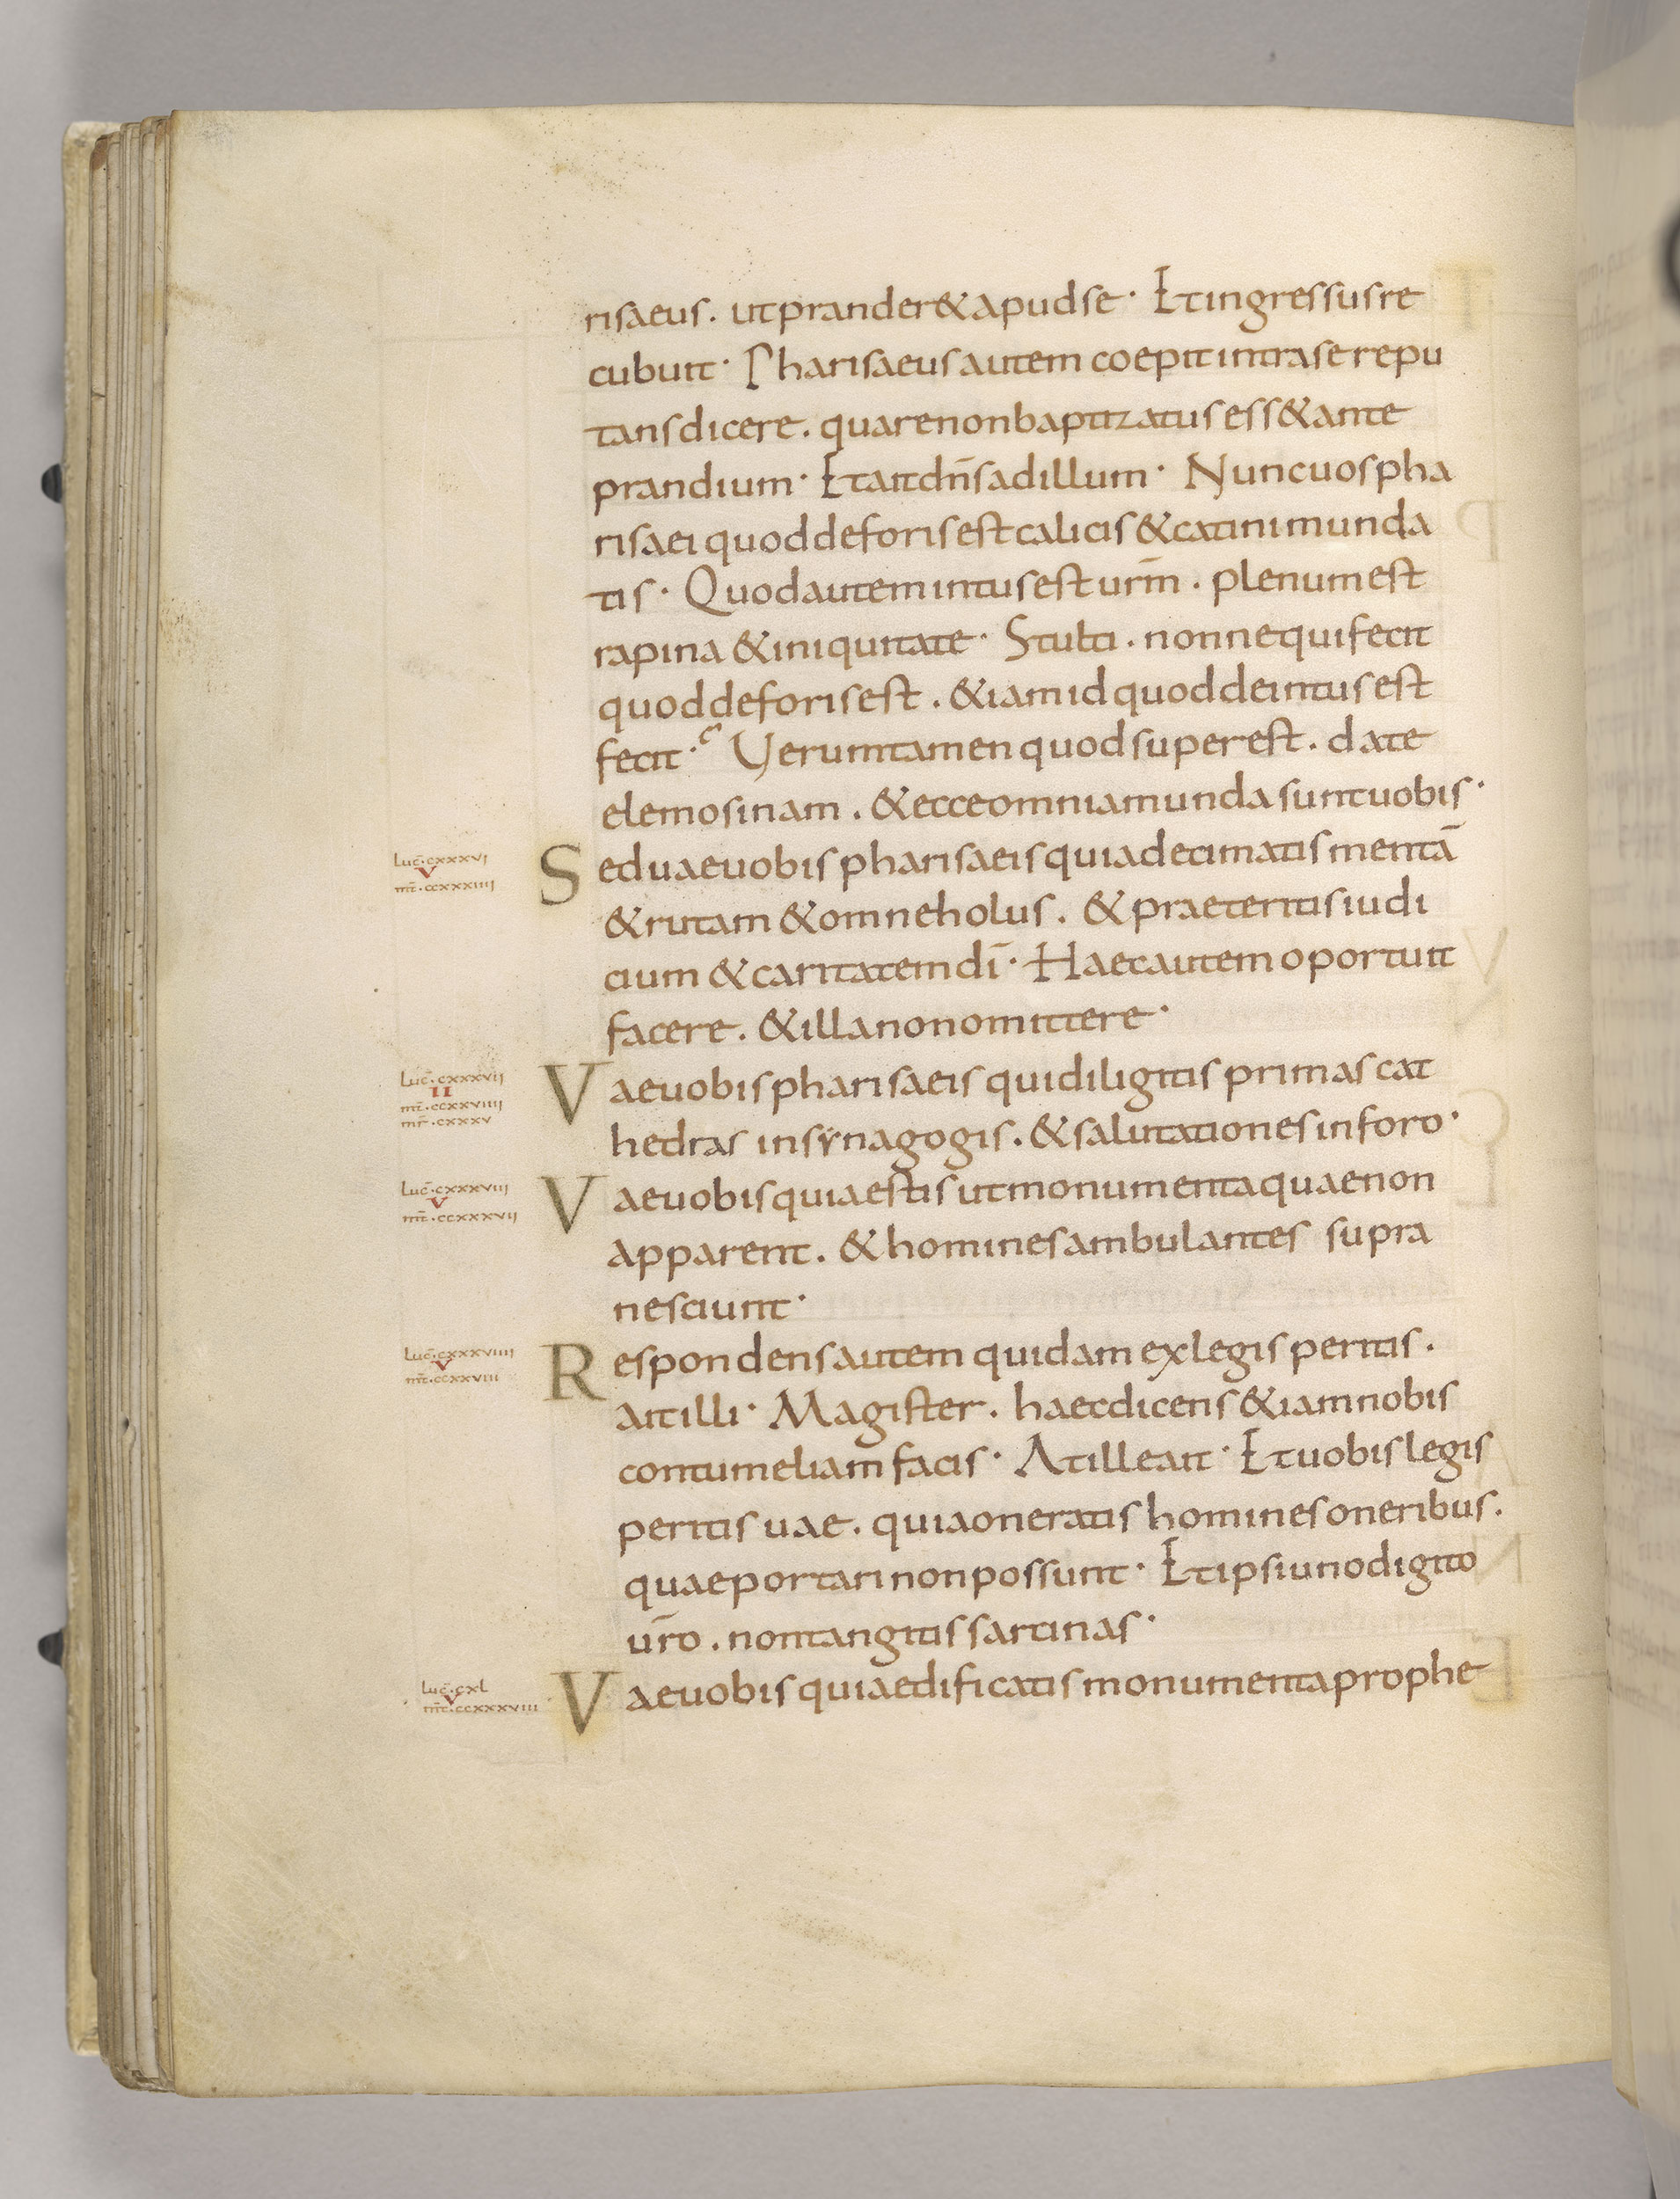 risaeus. ut prander& apud se· Et ingressus re
cubuit· Pharisaeus autem coepit intra se repu
tans dicere. quare non baptizatus ess& ante
prandium· Et ait dn̄s ad illum· Nunc uos pha
risaei quod deforis est calicis & catini munda
tis· Quod autem intus est ur̄m. plenum est
rapina & iniquitate· Stulti. nonne qui fecit
quod deforis est. &iam id quod deintus est
fecit· Uerumtamen quod superest. date
elemosinam. & ecce omnia munda sunt uobis·
Luc̄·cxxxvi
v
mt̄·ccxxxiiii
Sed uae uobis pharisaeis quia decimatis mentā
& rutam & omne holus. & praeteritis iudi
cium & caritatem dī· Haec autem oportuit
facere. & illa non omittere·
Luc̄·cxxxvii
II
mt̄·ccxxviiii
mr̄·cxxxv
Vae uobis pharisaeis qui diligitis primas cat
hedras in synagogis. & salutationes in foro·
Luc̄·cxxxviii
v
mt̄·ccxxxvii
Vae uobis quia estis ut monumenta quae non
apparent. & homines ambulantes supra
nesciunt·
Luc̄·cxxxviiii
v
mt̄·ccxxviii
Respondens autem quidam ex legis peritis.
ait illi· Magister. haec dicens &iam nobis
contumeliam facis· At ille ait· Et uobis legis
peritis uae. quia oneratis homines oneribus.
quae portari non possunt· Et ipsi uno digito
ur̄o. non tangitis sarcinas·
Luc̄·cxl
v
mt̄·ccxxxviii
Vae uobis quia edificatis monumenta prophe